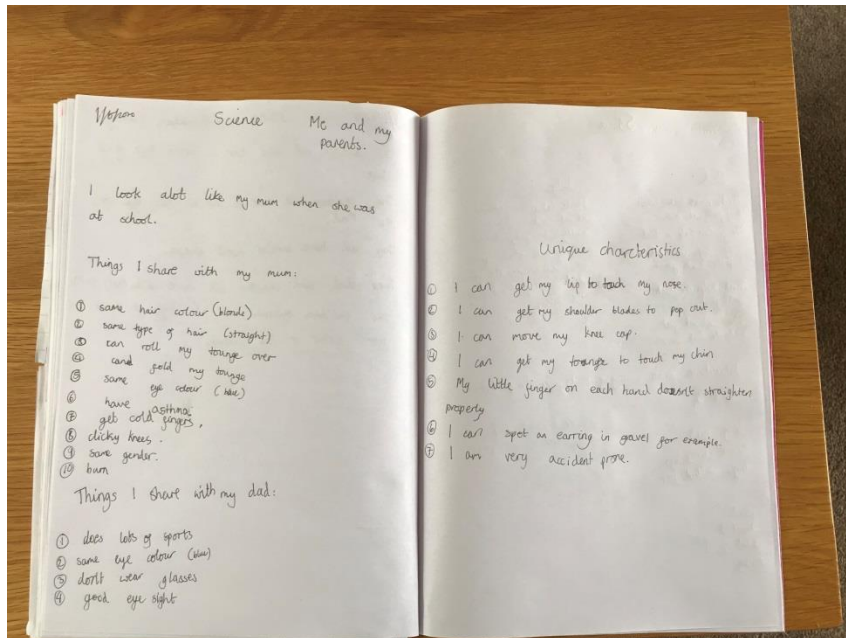 Science Me and my
parents.
I look alot like my mum when she was
at school.
Things I share with my mum:
① same hair colour (blonde)
② same type of hair (straight)
③ can roll my tounge over
④ and fold my tounge
⑤ same eye colour (blue)
⑥ have asthma
⑦ get cold fingers,
⑧ clicky knees.
⑨ same gender.
⑩ burn
Things I share with my dad:
① does lots of sports
② same eye colour (blue)
③ don't wear glasses
④ good eye sight
Unique charcteristics
① I can get my lip to touch my nose.
② I can get my shoulder blades to pop out.
③ I can move my knee cap.
④ I can get my tounge to touch my chin
⑤ My little finger on each hand doesn't straighten
properly
⑥ I can spot an earring in gavel for example.
⑦ I am very accident prone.